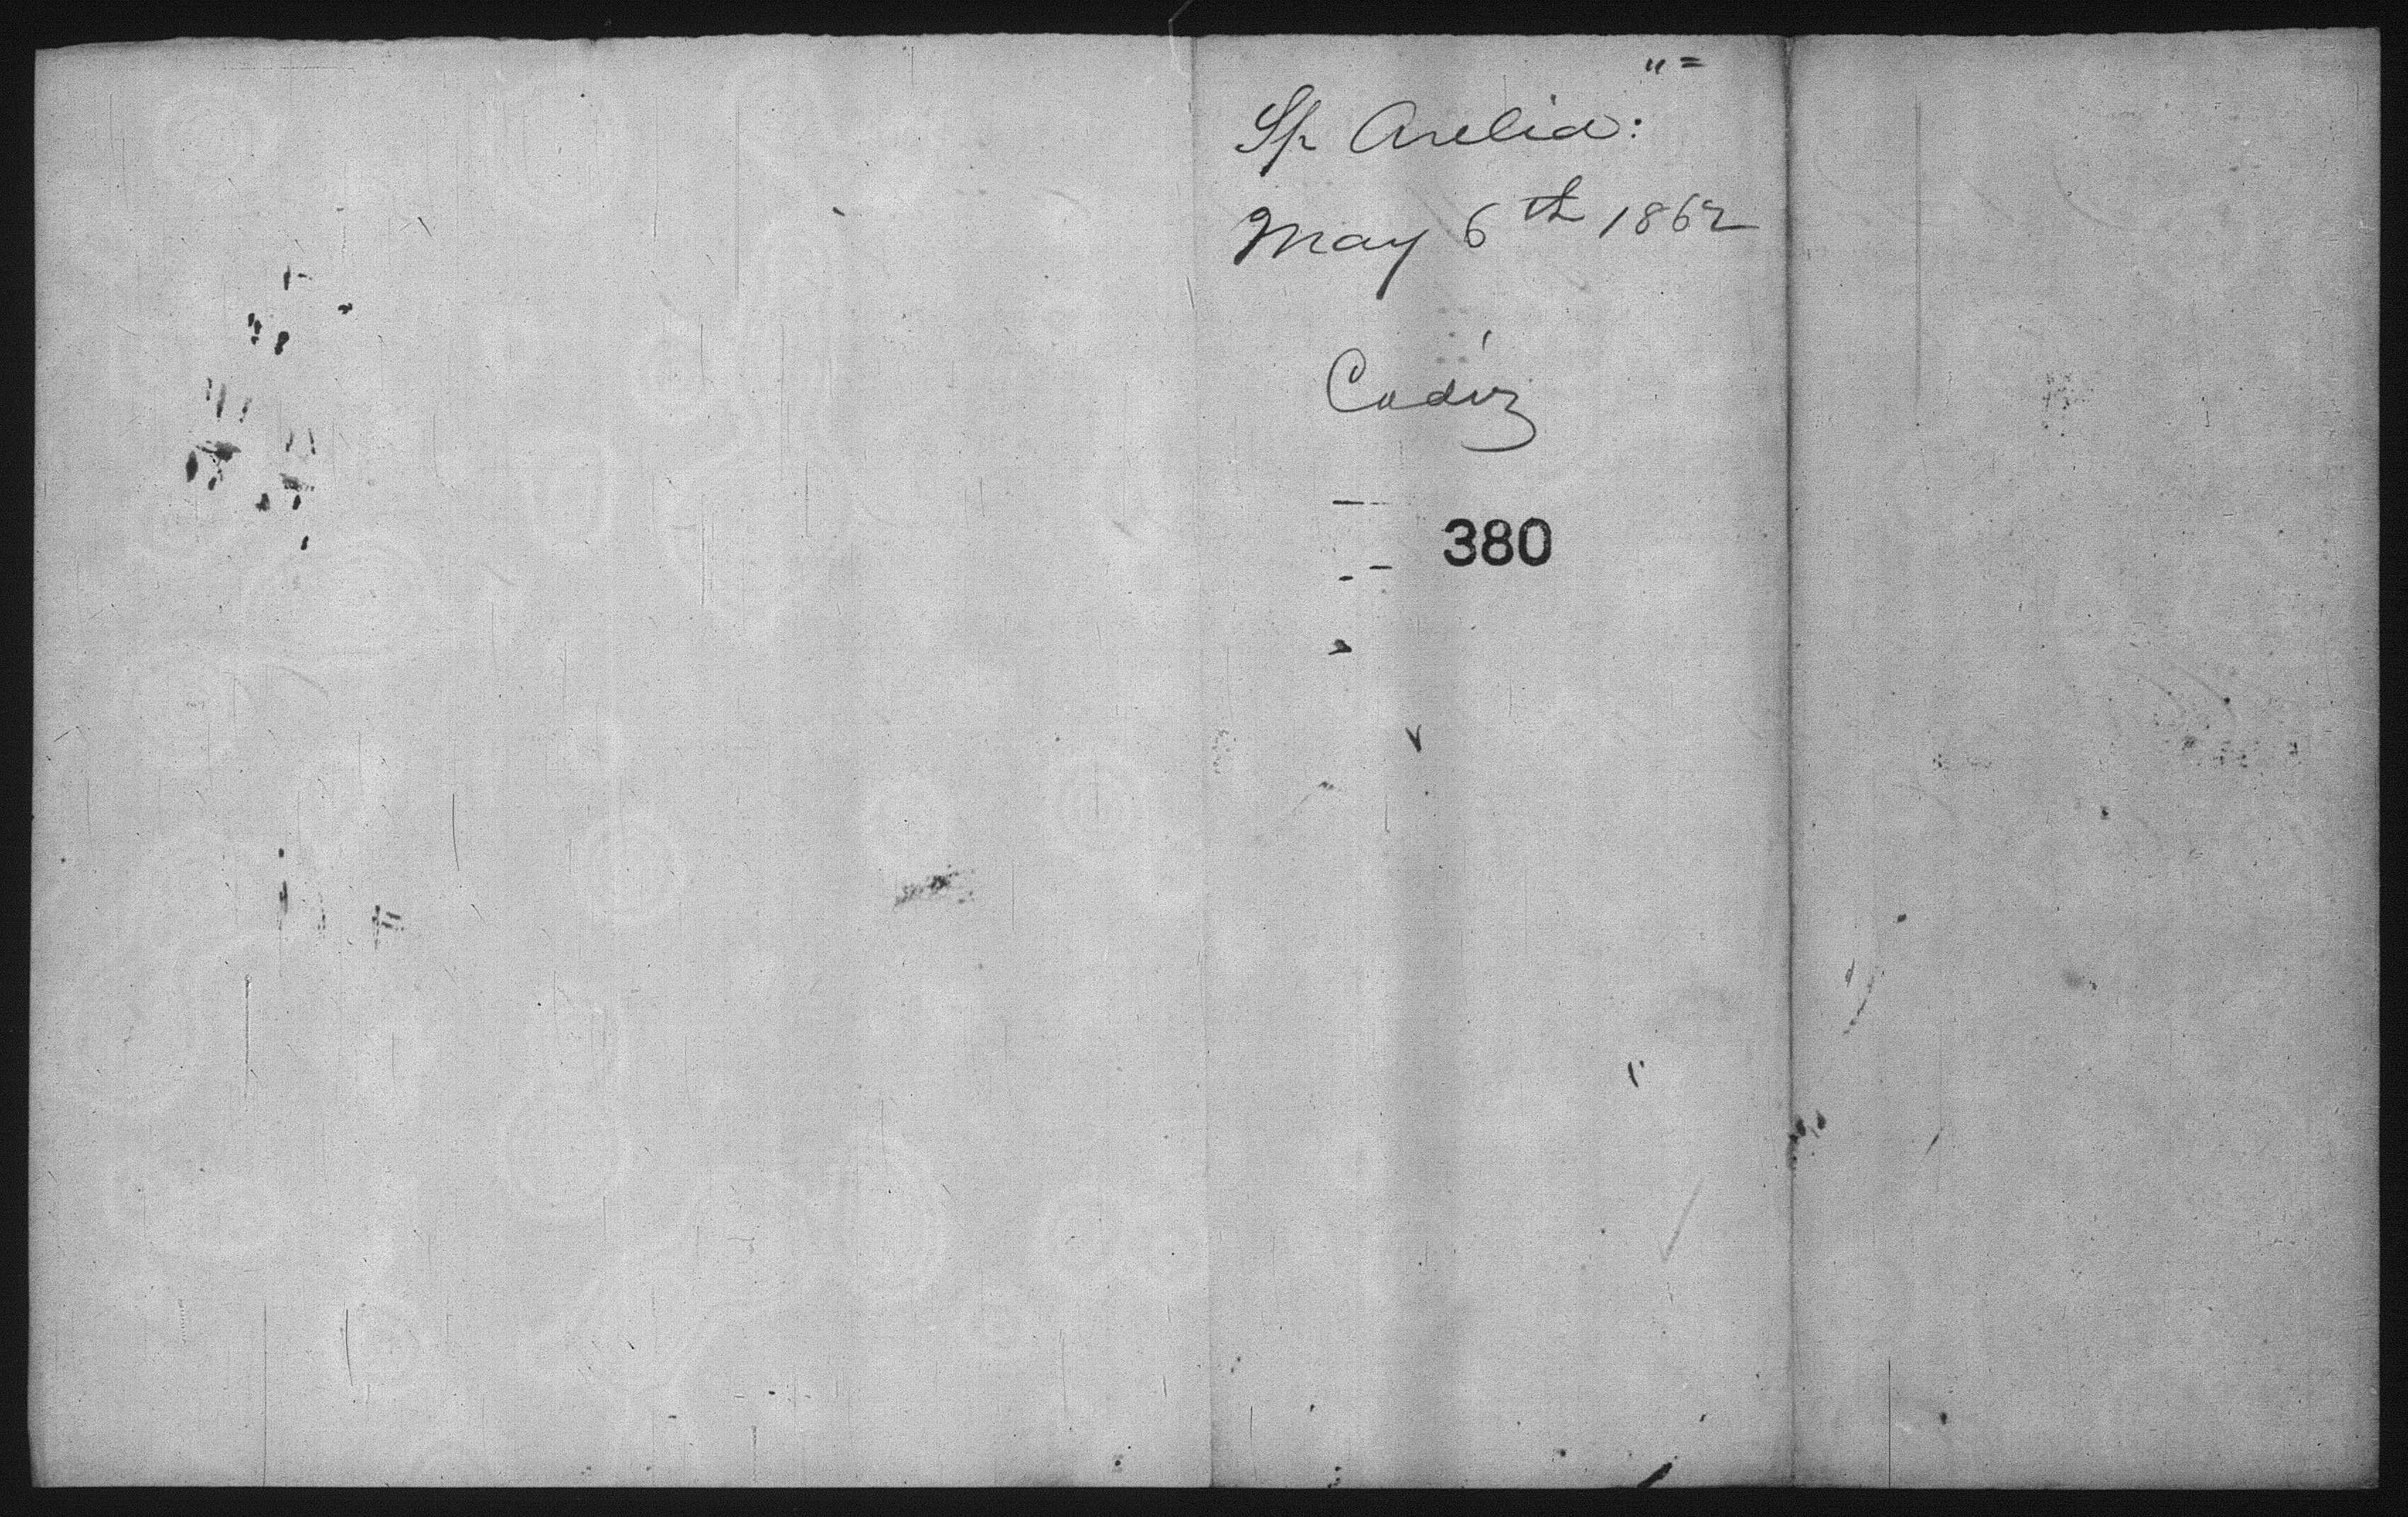 Sp Arelia:
May 6th 1862
Cadiz
380